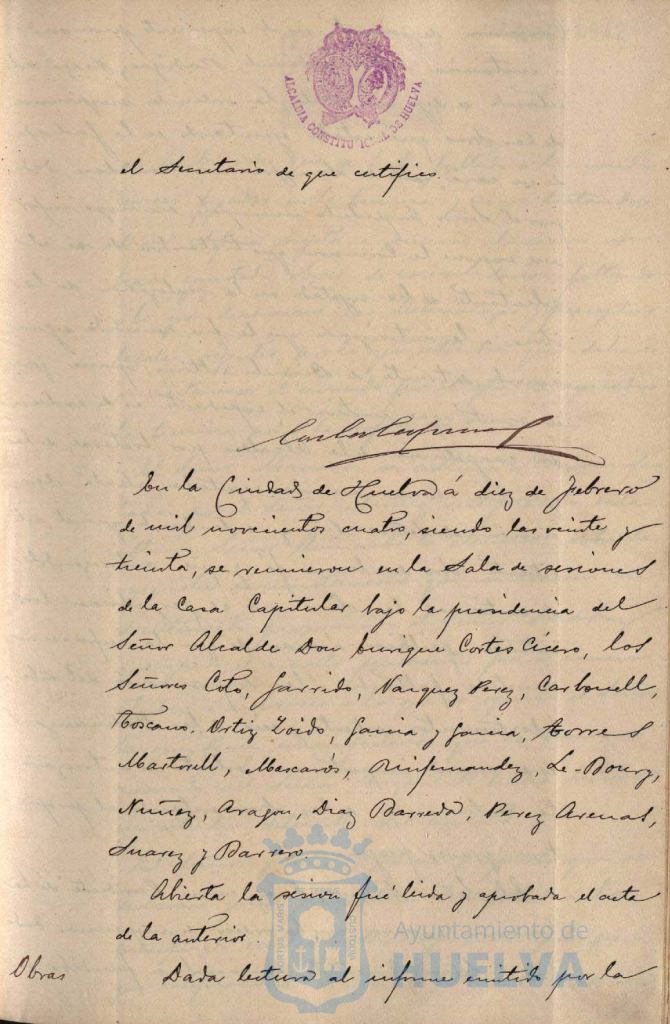 ALCALDIA CONSTITUCIONAL DE HUELVA
el Secretario de que certifico.
En la Ciudad de Huelva á diez de Febrero
de mil novecientos cuatro, siendo las veinte y
treinta, se reunieron en la Sala de sesiones
de la Casa Capitular bajo la presidencia del
Señor Alcalde Don Enrique Cortes Cicero, los
Señores Coto, Garrido, Vazquez Perez, Carbonell,
Toscano, Ortiz Zoido, Garcia y Garcia, Torres
Martorell, Mascarós, Le-Bourg,
Nuñez, Aragon, Diaz Barreda, Perez Arenas,
Suarez y Barrero.
Abierta la sesion fué leida y aprobada el acta
de la anterior.
Ayuntamiento de
HUELVA
Obras
Dada lectura al informe emitido por la